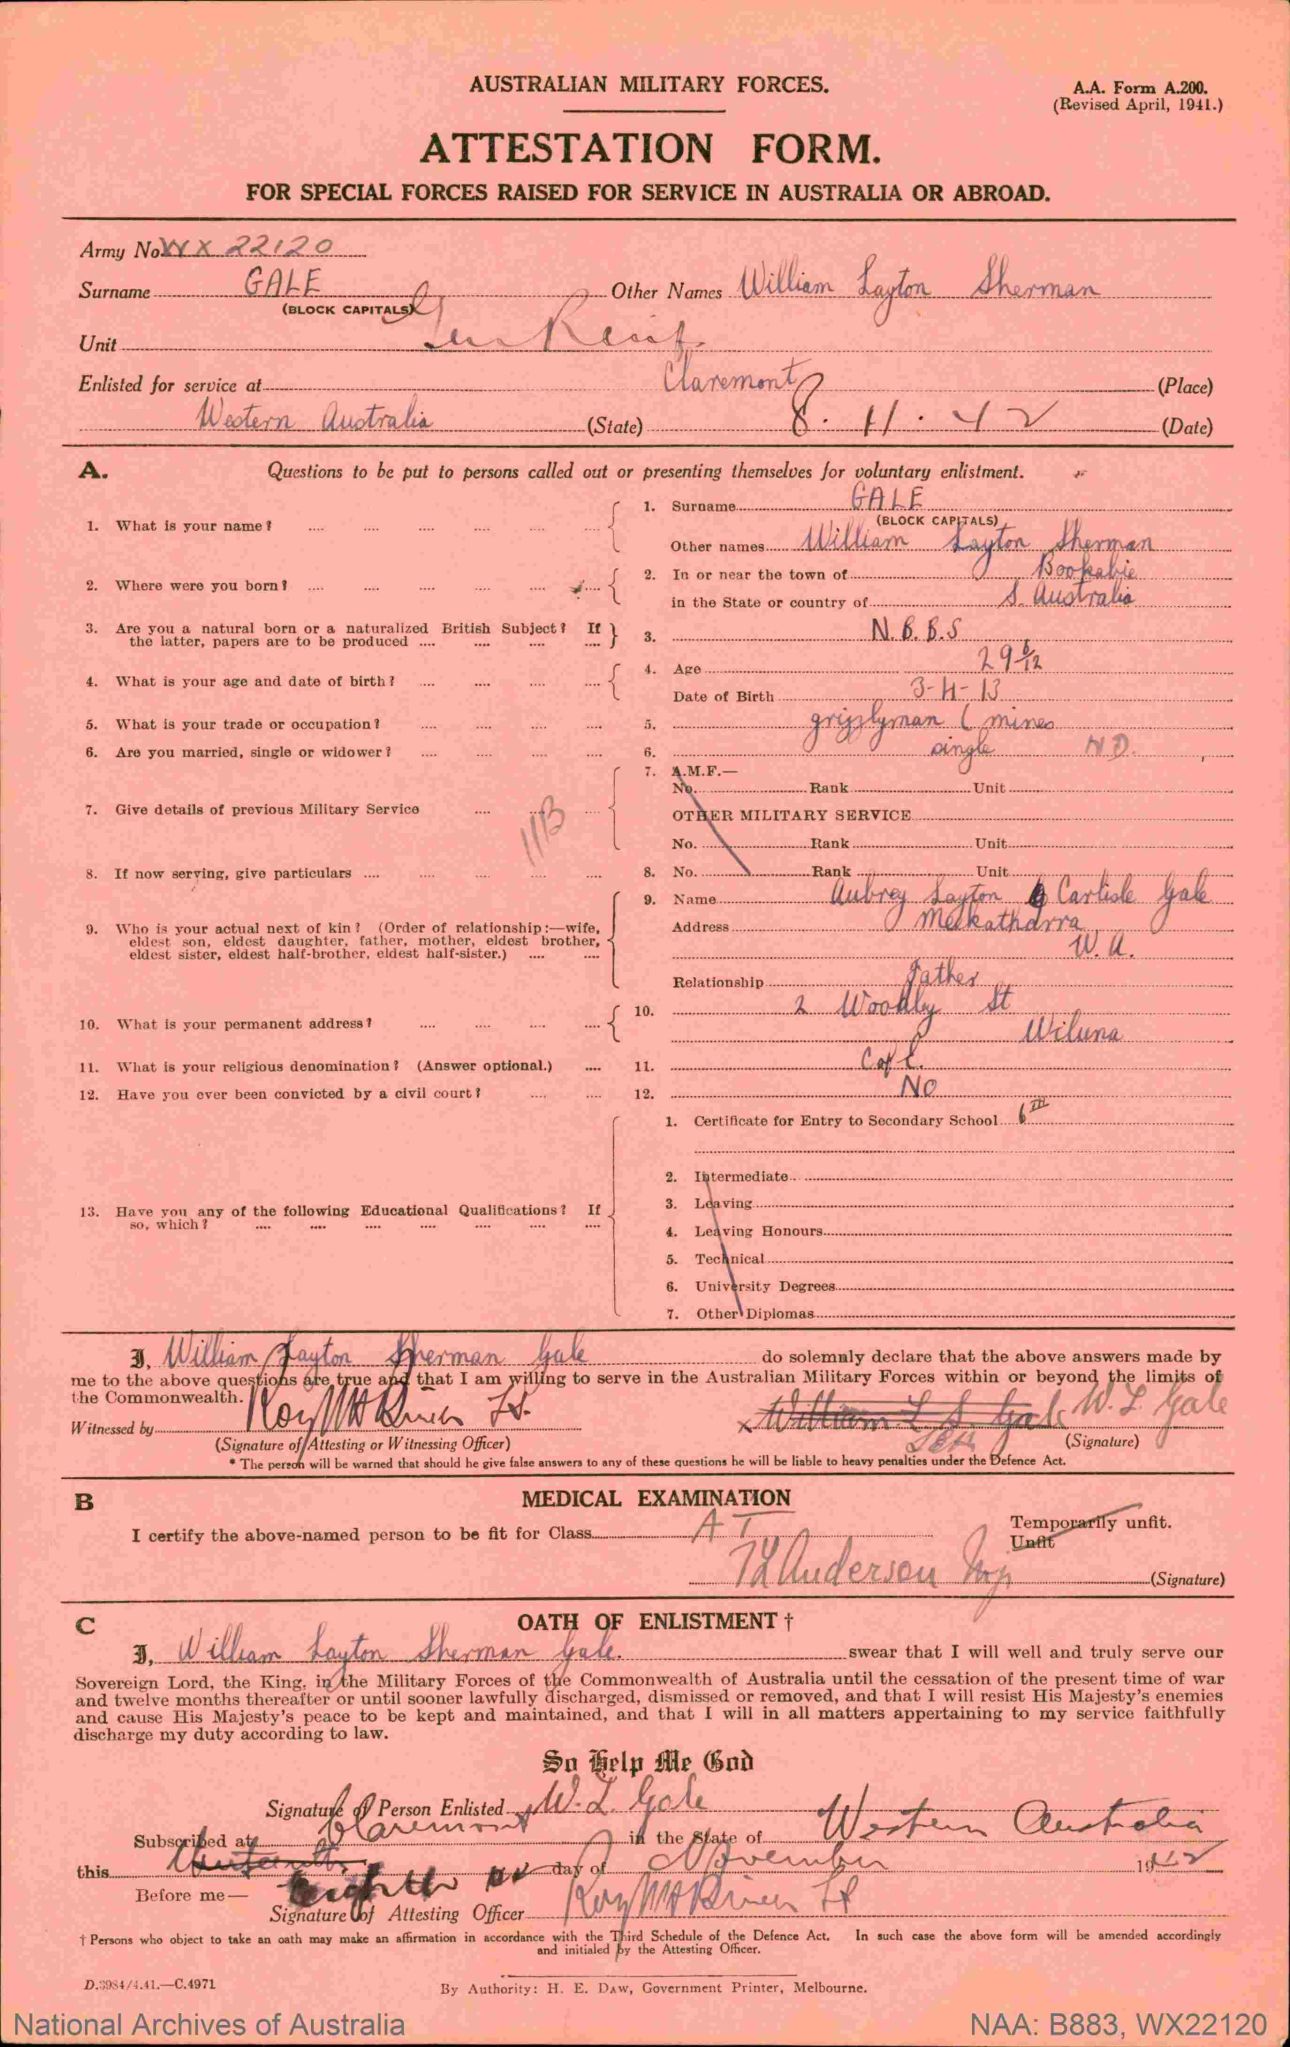 AUSTRALIAN MILITARY FORCES.
A.A. Form A.200.
(Revised April, 1941.)
ATTESTATION FORM.
FOR SPECIAL FORCES RAISED FOR SERVICE IN AUSTRALIA OR ABROAD.
Army No. WX 22120
Surname GALE Other Names William Layton Sherman
(BLOCK CAPITALS)
Unit Gen Reinf
Enlisted for service at Claremont (Place)
Western Australia (State) 8. 11. 42 (Date)
A. Questions to be put to persons called out or presenting themselves for voluntary enlistment.
1. What is your name? 1. Surname GALE
(BLOCK CAPITALS)
Other names William Layton Sherman
2. Where were you born? 2. In or near the town of Bookabie
in the State or country of S. Australia
3. Are you a natural born or a naturalized British Subject? If the latter, papers are to be produced 3. N.B.B.S
4. What is your age and date of birth? 4. Age 29 6/12
Date of Birth 3-4-13
5. What is your trade or occupation? 5. grizzlyman ( mines
6. Are you married, single or widower? 6. single N D.
7. Give details of previous Military Service 7. A.M.F.—
No. Rank Unit
OTHER MILITARY SERVICE
No. Rank Unit
8. If now serving, give particulars 8. No. Rank Unit
9. Who is your actual next of kin? (Order of relationship:—wife, eldest son, eldest daughter, father, mother, eldest brother, eldest sister, eldest half-brother, eldest half-sister.)
9. Name Aubrey Layton Carlisle Gale
Address Meekatharra
W. A.
Relationship Father
10. What is your permanent address? 10. 2 St
Wiluna
11. What is your religious denomination? (Answer optional.) 11. C of E.
12. Have you ever been convicted by a civil court? 12. NO
13. Have you any of the following Educational Qualifications? If so, which?
1. Certificate for Entry to Secondary School 6
2. Intermediate
3. Leaving
4. Leaving Honours
5. Technical
6. University Degrees
7. Other Diplomas
I, William Layton Sherman Gale do solemnly declare that the above answers made by
me to the above questions are true and that I am willing to serve in the Australian Military Forces within or beyond the limits of
the Commonwealth.
Witnessed by x William L S. Gale W. L Gale
(Signature of Attesting or Witnessing Officer) (Signature)
* The person will be warned that should he give false answers to any of these questions he will be liable to heavy penalties under the Defence Act.
B MEDICAL EXAMINATION
I certify the above-named person to be fit for Class Temporarily unfit.
Unfit
Anderson (Signature)
C OATH OF ENLISTMENT †
I, William Layton Sherman Gale. swear that I will well and truly serve our
Sovereign Lord, the King, in the Military Forces of the Commonwealth of Australia until the cessation of the present time of war
and twelve months thereafter or until sooner lawfully discharged, dismissed or removed, and that I will resist His Majesty's enemies
and cause His Majesty's peace to be kept and maintained, and that I will in all matters appertaining to my service faithfully
discharge my duty according to law.
So Help Me God
Signature of Person Enlisted x W. L Gale
Subscribed at Claremont in the State of Western Australia
this eighth day of November 1942
Before me—
Signature of Attesting Officer
† Persons who object to take an oath may make an affirmation in accordance with the Third Schedule of the Defence Act. In such case the above form will be amended accordingly
and initialed by the Attesting Officer.
D.3984/4.41.—C.4971
By Authority: H. E. DAW, Government Printer, Melbourne.
National Archives of Australia
NAA: B883, WX22120